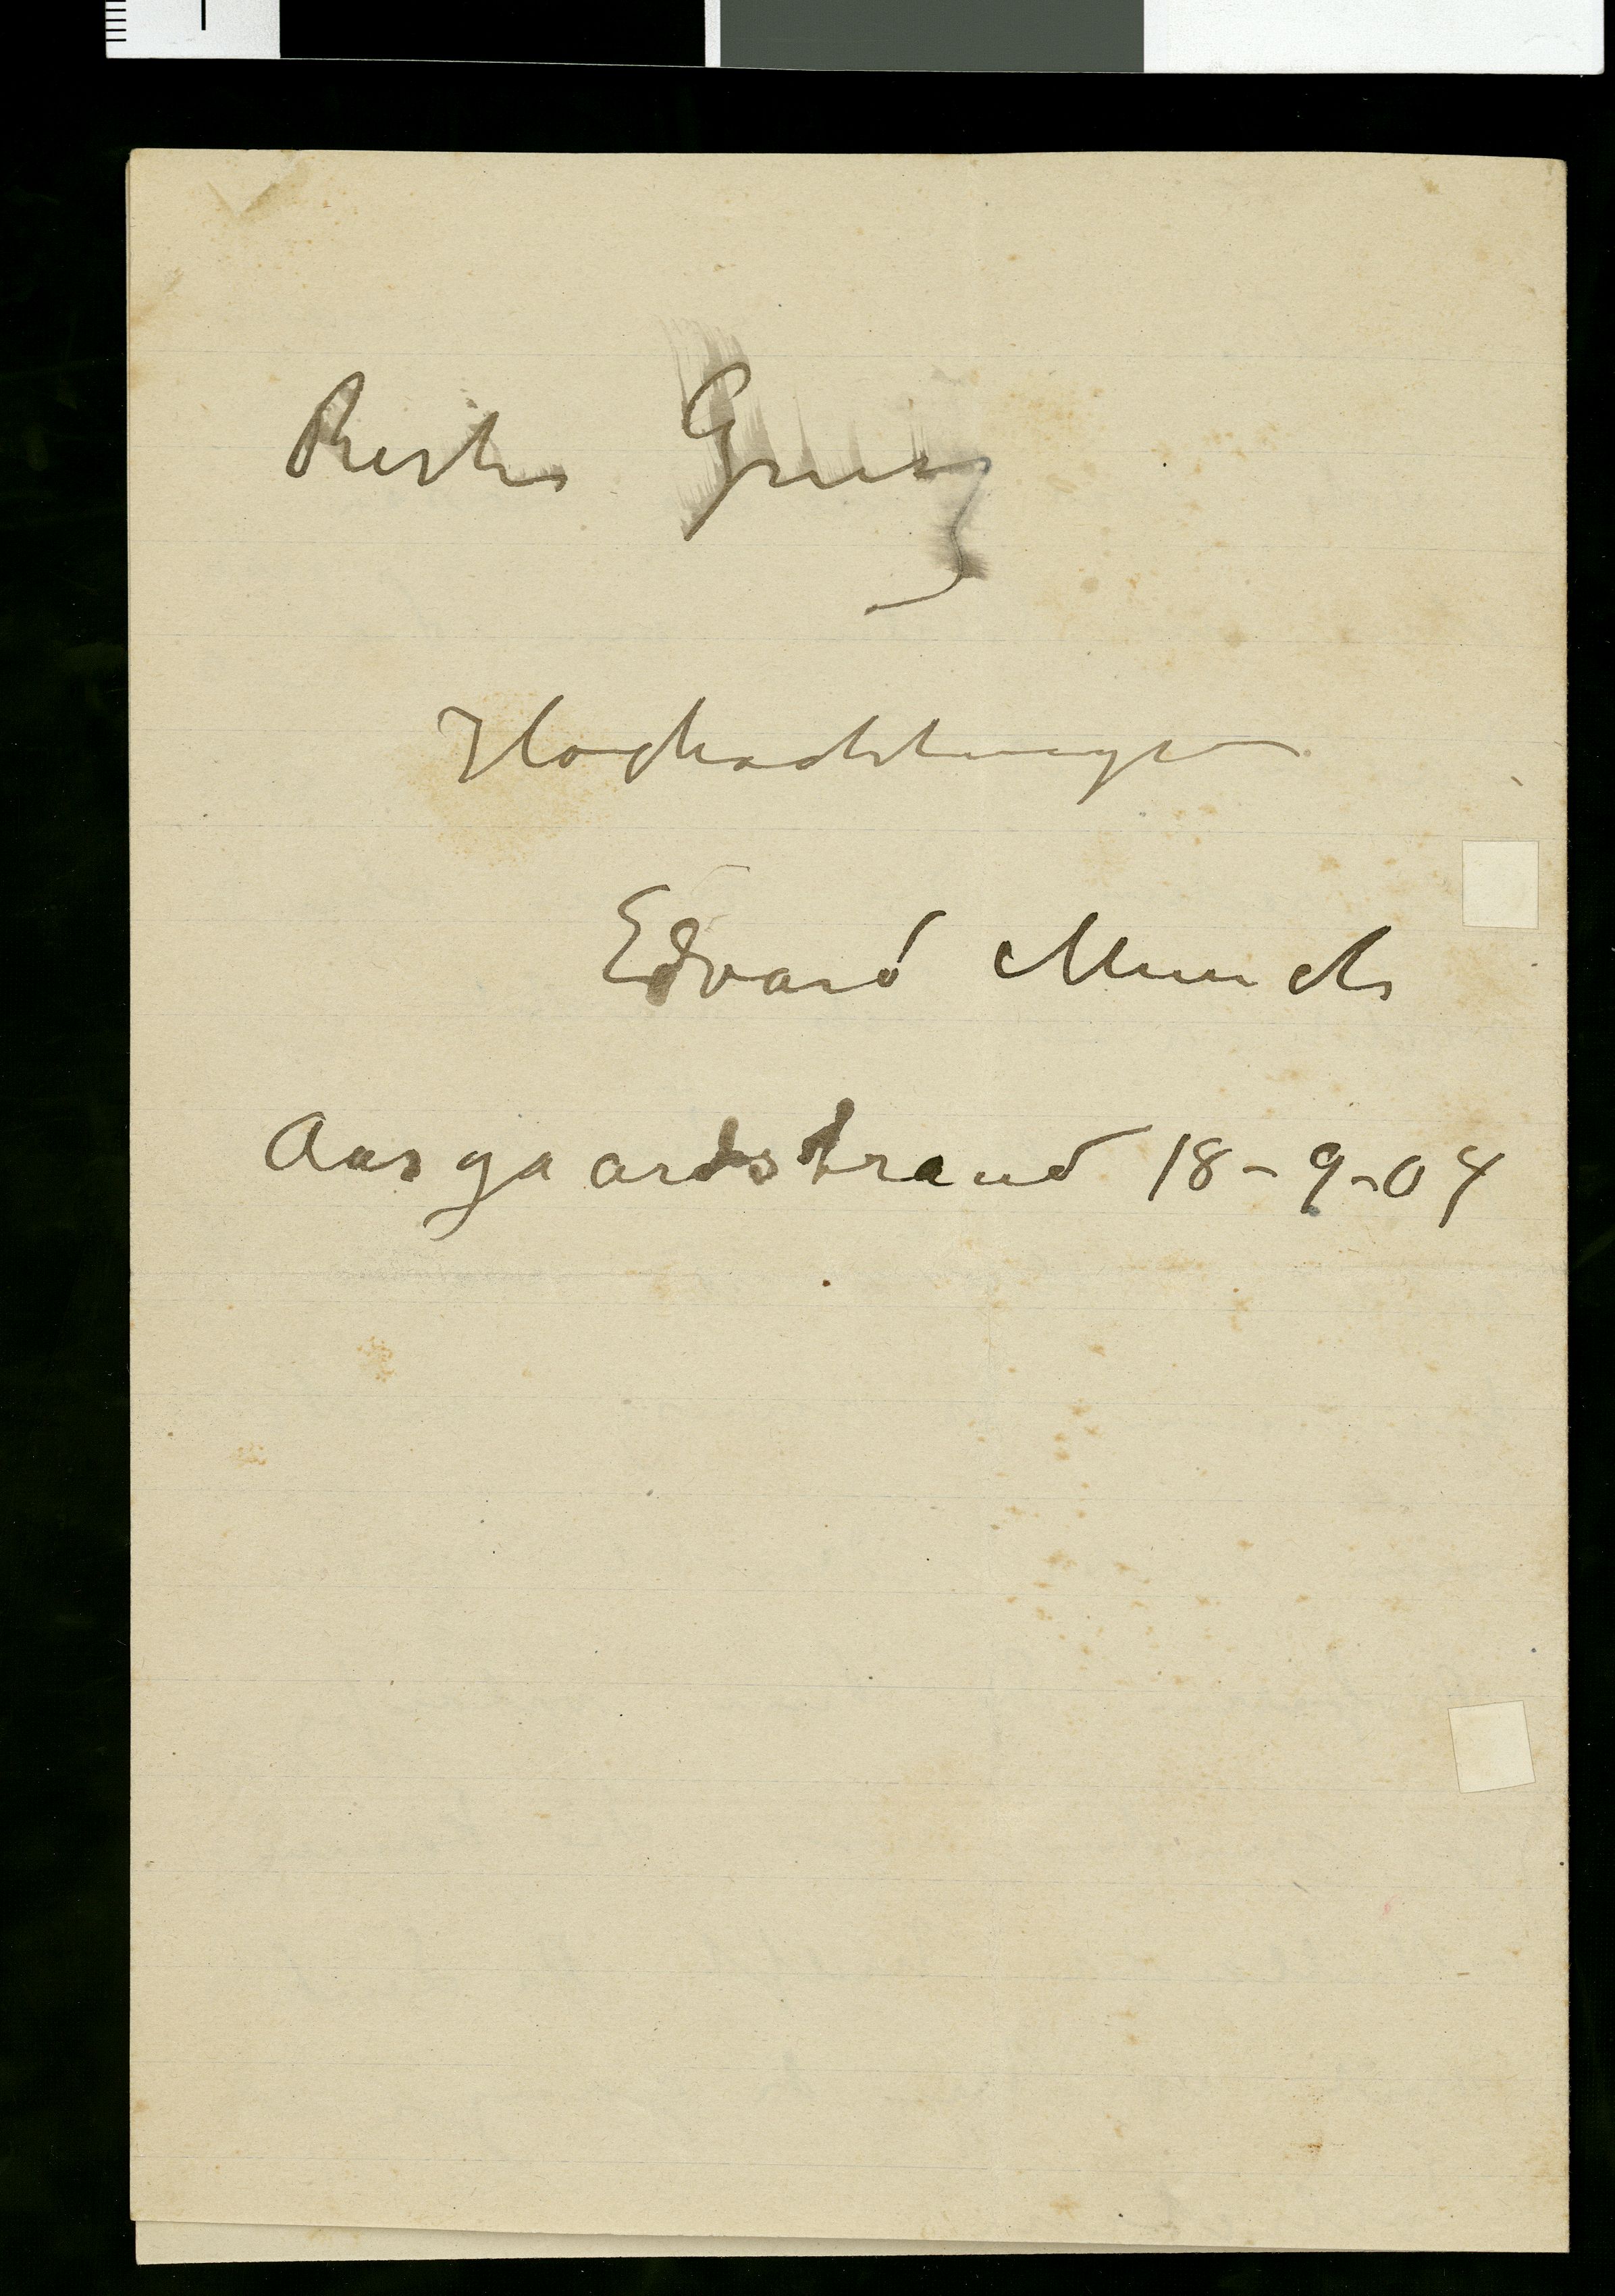 Besten Gruss
Hochachtungsv
Edvard Munch
Aasgaardstrand 18-9-04